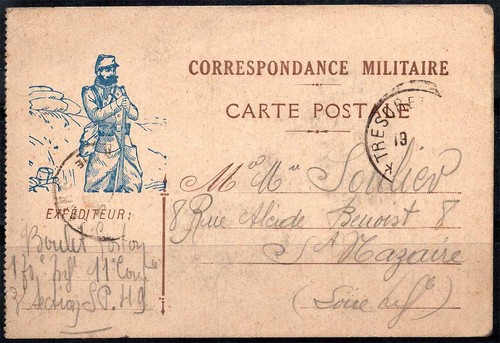 CORRESPONDANCE MILITAIRE
CARTE POSTALE
TRESOR ET
19
EXPÉDITEUR:
Boulet Gaston
11e
S.P. 49
Soulier
8 Rue Alcide Benoist 8
St Nazaire
(Loire Infre)